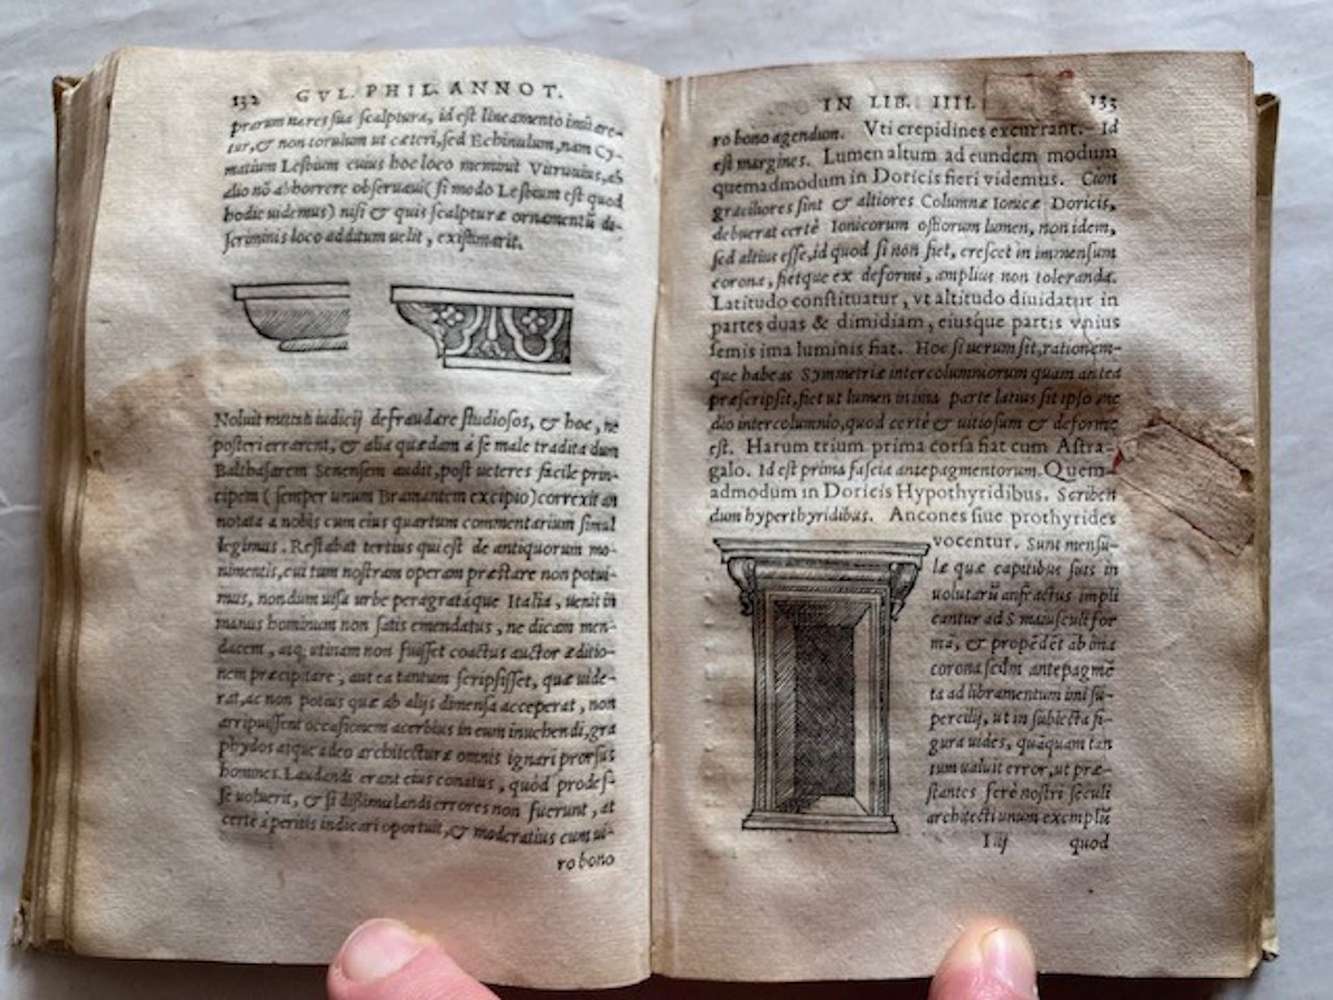 132 GVL. PHIL. ANNOT.
prorum nares sua scalptura, id est lineamento imi
tur, & non torulum ut cæteri, sed Echinulum, nam Cy-
matium Lesbium cuius hoc loco meminit Vitruuius, ab
dio nō abhorrere obseruaui (si modo Lesbium est quod
hodie uidemus) nisi & quis scalpturæ ornamentū di-
scriminis loco additum uelit, existimarit.
Noluit iudicij defraudare studiosos, & hoc, ne
posteri errarent, & alia quædam à se male tradita dum
Balthasarem Senensem audit, post ueteres facile prin-
cipem (semper unum Bramantem excipio) correxit an
notata à nobis cum eius quartum commentarium simul
legimus. Restabat tertius qui est de antiquorum mo-
nimentis, cui tum nostram operam præstare non potui-
mus, nondum uisa urbe peragratáque Italia, uenit in
manus hominum non satis emendatus, ne dicam men-
dacem, atq; utinam non fuisset coactus auctor æditio-
nem præcipitare, aut ea tantum scripsisset, quæ uide-
rat, ac non potius quæ ab alijs dimensa acceperat, non
arripuissent occasionem acerbius in eum inuehendi, gra
phydos atque adeo architecturæ omnis ignari prorsus
homines. Laudandi erant eius conatus, quòd prodes-
se uoluerit, & si dissimulandi errores non fuerunt, at
certè à peritis indicari oportuit, & moderatius cum ui-
ro bono
IN LIB. IIII. 133
ro bono agendum. Vti crepidines excurrant. Id
est margines. Lumen altum ad eundem modum
quemadmodum in Doricis fieri videmus. Cùm
graciliores sint & altiores Columnæ Ionicæ Doricis,
debuerat certè Ionicorum ostiorum lumen, non idem,
sed altius esse, id quod si non fiet, crescet in immensum
corona, fietque ex deformi, amplius non toleranda.
Latitudo constituatur, vt altitudo diuidatur in
partes duas & dimidiam, eiusque partis vnius
semis ima luminis fiat. Hoc si uerum sit, rationem-
que habeas Symmetriæ intercolumniorum quam antea
præscripsit, fiet ut lumen in ima parte latius sit ipso me
dio intercolumnio, quod certè & uitiosum & deforme
est. Harum trium prima corsa fiat cum Astra-
galo. Id est prima fascia antepagmentorum. Quem-
admodum in Doricis Hypothyridibus. Scriben
dum hyperthyridibus. Ancones siue prothyrides
vocentur. Sunt mensu-
læ quæ capitibus suis in
uolutarū anfractus impli
cantur ad S maiusculi for
mā, & propēdēt ab ima
corona secūdm antepagmē
ta ad libramentum imi su-
percilij, ut in subiecta fi-
gura uides, quāquam tan
tum ualuit error, ut præ-
stantes ferè nostri seculi
architecti unum exemplū
I iij quod